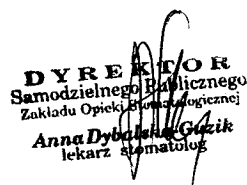 DYREKTOR
Samodzielnego Publicznego
Zakładu Opieki Stomatologicznej
Anna Dybalska-Guzik
lekarz stomatolog